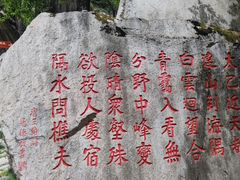 太乙近天都
連山到海隅
白雲迴望合
青靄入看無
分野中峰變
陰晴眾壑殊
欲投人處宿
隔水問樵夫